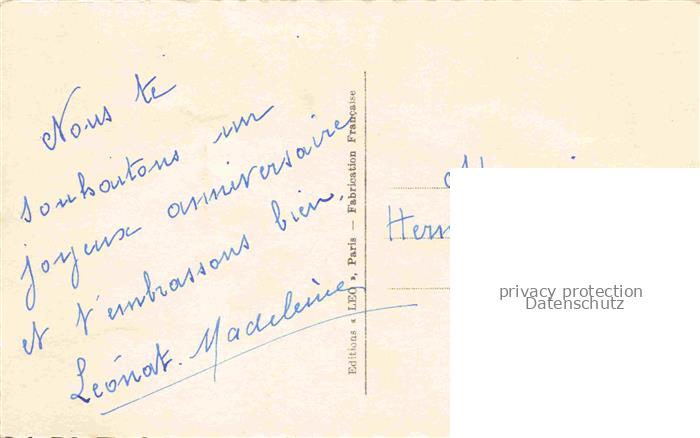 Nous te
souhaitons un
joyeux anniversaire
et t'embrassons bien.
Léonat. Madeleine
Editions « LEO », Paris — Fabrication Française
privacy protection
Datenschutz